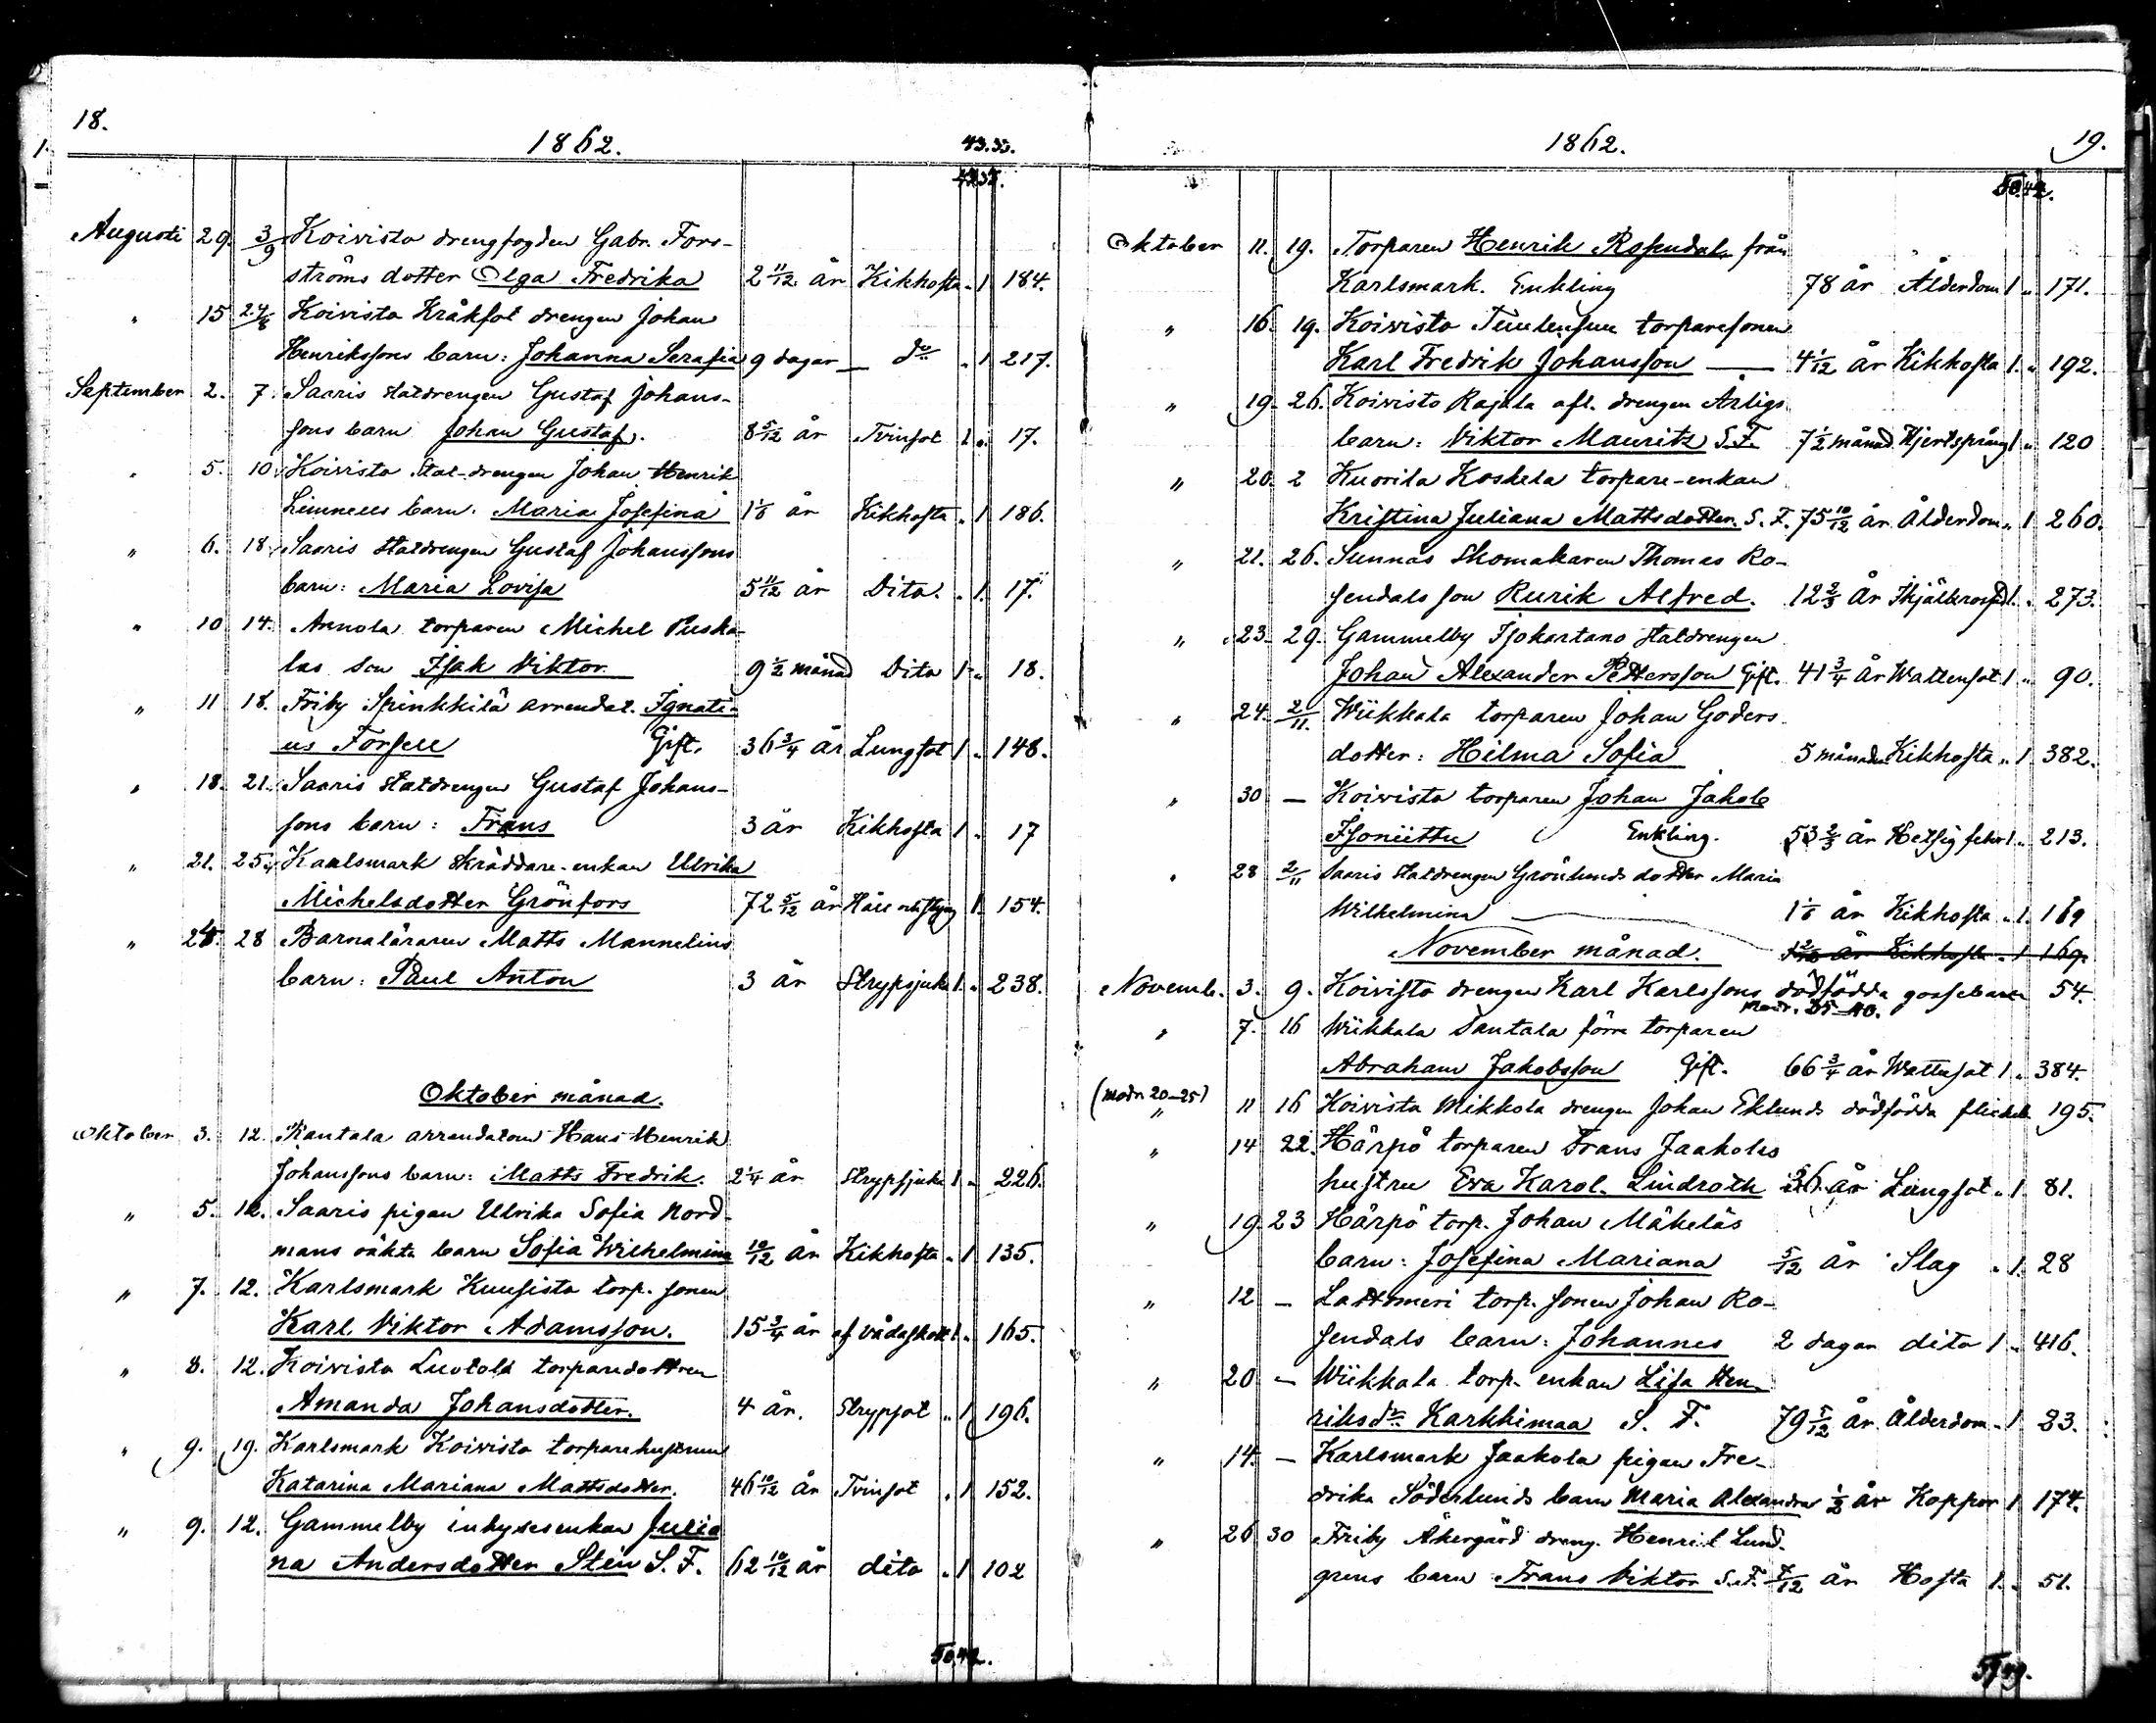 18.
1862.
43.35.
Augusti 29. 3/9 Koivisto drengfogden Gabr. Fors-
ströms dotter Olga Fredrika 2 11/12 år Kikhosta „ 1 184.
„ 15 24/8 Koivisto Kråkfot drengen Johan
Henrikssons barn: Johanna Serafia 9 dagar — do „ 1 217.
September 2. 7. Saaris statdrengen Gustaf Johans-
sons barn Johan Gustaf. 8 5/12 år Tvinsot 1 „ 17.
„ 5. 10. Koivisto Stat-drengen Johan Henrik
Limnells barn: Maria Josefina 1 1/6 år Kikhosta „ 1 186.
„ 6. 18. Saaris statdrengen Gustaf Johanssons
barn: Maria Lovisa 5 11/12 år Dito. „ 1. 17.
„ 10 14. Annola torparen Michel Puska-
las son Isak Viktor 9 1/2 månad Dito 1 „ 18.
„ 11 18. Friby Spinkkilä arrendat. Ignati-
us Forsell Gift. 36 3/4 år Lungsot 1 „ 148.
„ 18. 21. Saaris statdrengen Gustaf Johans-
sons barn: Frans 3 år Kikhosta 1 „ 17
„ 21. 25. Karlsmark skräddare-enkan Ulrika
Michelsdotter Grönfors 72 5/12 år Håll och styng 1. 154.
„ 28 Barnaläraren Matts Mannelins
barn: Paul Anton 3 år Strypsjuka 1. „ 238.
Oktober månad.
Oktober 3. 12. Rantala arrendatorn Hans Henrik
Johanssons barn: Matts Fredrik. 2 1/4 år Strypsjuka 1 „ 226.
„ 5. 12. Saaris pigan Ulrika Sofia Nord-
mans oäkta barn Sofia Wilhelmina 10/12 år Kikhosta „ 1 135.
„ 7. 12. Karlsmark Kuusisto torp. sonen
Karl Viktor Adamsson. 15 3/4 år af vådaskott 1 „ 165.
„ 8. 12. Koivisto Luotola torparedottren
Amanda Johansdotter. 4 år. Strypsot „ 1 196.
„ 9. 19. Karlsmark Koivisto torparehustrun
Katarina Mariana Mattsdotter. 46 10/12 år Tvinsot „ 1 152.
„ 9. 12. Gammelby inhysesenkan Julia
na Andersdotter Sten S. F. 62 10/12 år dito „ 1 102
50.42.
1862.
19.
50.42.
Oktober 11. 19. Torparen Henrik Rosendal från
Karlsmark. Enkling 78 år Ålderdom 1 „ 171.
„ 16. 19. Koivisto torparesonen
Karl Fredrik Johansson — 4 1/12 år Kikhosta 1. „ 192.
„ 19. 26. Koivisto Rajala afl. drengen Ärligs
barn: Viktor Mauritz S.F. 7 1/2 månad Hjertsprång 1 „ 120
„ 20. 2 Kuorila Koskela torpare-enkan
Kristina Juliana Mattsdotter. S. F. 75 10/12 år Ålderdom „ 1 260.
„ 21. 26. Sunnäs Skomakaren Thomas Ro-
sendals son Rurik Alfred. 12 2/3 år 1. „ 273.
„ 23. 29. Gammelby Isokartano statdrengen
Johan Alexander Pettersson Gift. 41 3/4 år Wattensot 1 „ 90.
„ 24. 2/11. Wiikkala torparen Johan Goders
dotter: Hilma Sofia 5 månader Kikhosta „ 1 382.
„ 30 — Koivisto torparen Johan Jakob
Isoniittu Enkling. 53 2/3 år Hetsig feber 1 „ 213.
„ 28 2/11 Saaris Statdrengen Grönlunds dotter Maria
Wilhelmina — 1 1/6 år Kikhosta „ 1. 169
November månad. 1 2/12 år Kikhosta „ 1 169.
Novemb. 3. 9. Koivisto drengen Karl Karlssons dödfödda gossebarn 54.
Modr. 35-40.
„ 7. 16 Wiikkala Santala förre torparen
Abraham Jakobsson Gift. 66 3/4 år Wattusot 1 „ 384.
(modr 20-25)
„ 11 16 Koivisto Mikkola drengen Johan Eklunds dödfödda flickeb 195.
„ 14 22. Härpö torparen Frans Jaakolas
hustru Eva Karol. Lindroth 36 år Lungsot „ 1 81.
„ 19 23 Härpö torp. Johan Mäkeläs
barn: Josefina Mariana 5/12 år Slag „ 1. 28
„ 12 — Lattomeri torp. sonen Johan Ro-
sendals barn: Johannes 2 dagar dito 1 „ 416.
„ 20 — Wiikkala torp. enkan Lisa Hen-
riksdr Karhkimaa S. F. 79 5/12 år Ålderdom „ 1 23.
„ 14. — Karlsmark Jaakola pigan Fre-
drika Söderlunds barn Maria Alexandra 1/2 år Koppor 1 174.
„ 26 30 Friby Åkergård dreng. Henrik Lund-
grens barn Frans Viktor S.F. 7/12 år Hosta 1. „ 51.